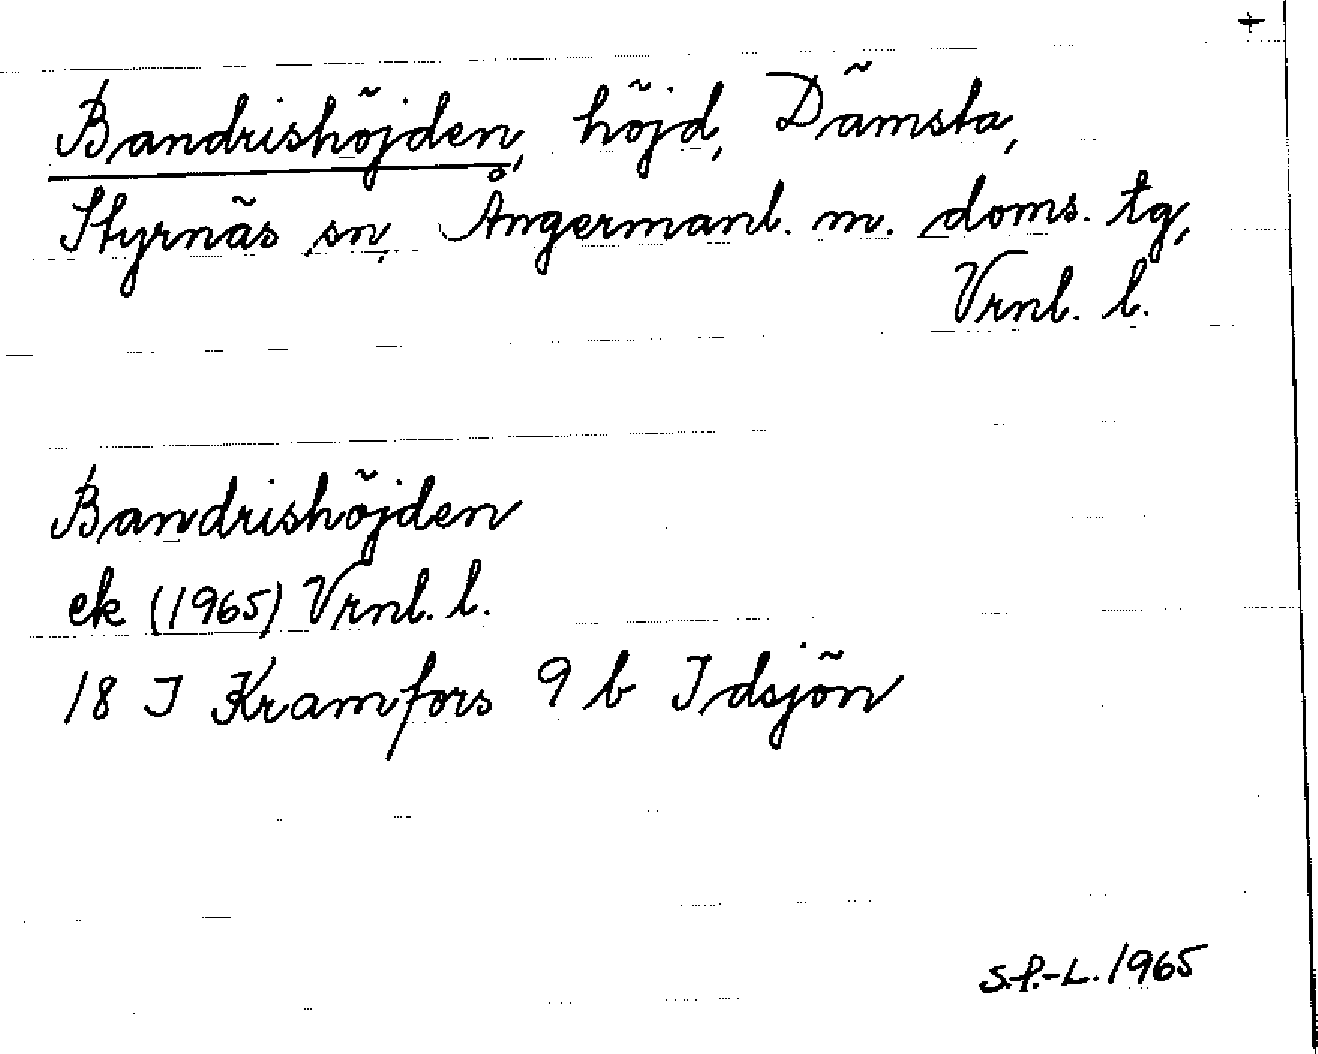 +
Bandrishöjden, höjd, Dämsta,
Styrnäs sn, Ångermanl. m. doms. tg,
Vrnl. l.
Bandrishöjden
ek (1965) Vrnl. l.
18 I Kramfors 9 b Idsjön
S.P.-L. 1965